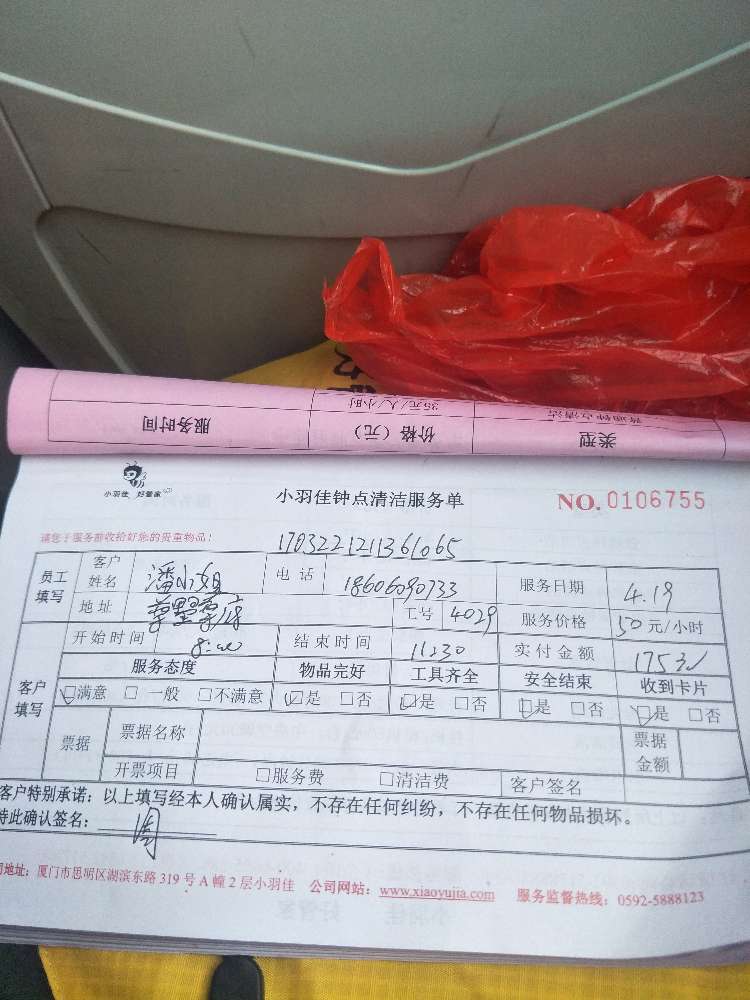 服务时间 价格（元） 类型
35元/人/小时 普通钟点清洁
小羽佳 好管家
小羽佳钟点清洁服务单 NO. 0106755
请您于服务前收拾好您的贵重物品！
1703221211361065
员工填写 客户姓名 潘小姐 电话 18606090733 服务日期 4.19
地址 工号 4029 服务价格 50元/小时
客户填写 开始时间 8:00 结束时间 11:30 实付金额 175
服务态度 物品完好 工具齐全 安全结束 收到卡片
☑满意 □一般 □不满意 ☑是 □否 ☑是 □否 ☑是 □否 ☑是 □否
票据 票据名称 票据金额
开票项目 □服务费 □清洁费 客户签名
客户特别承诺：以上填写经本人确认属实，不存在任何纠纷，不存在任何物品损坏。
特此确认签名： 周
司地址：厦门市思明区湖滨东路319号A幢2层小羽佳 公司网站：www.xiaoyujia.com 服务监督热线：0592-5888123